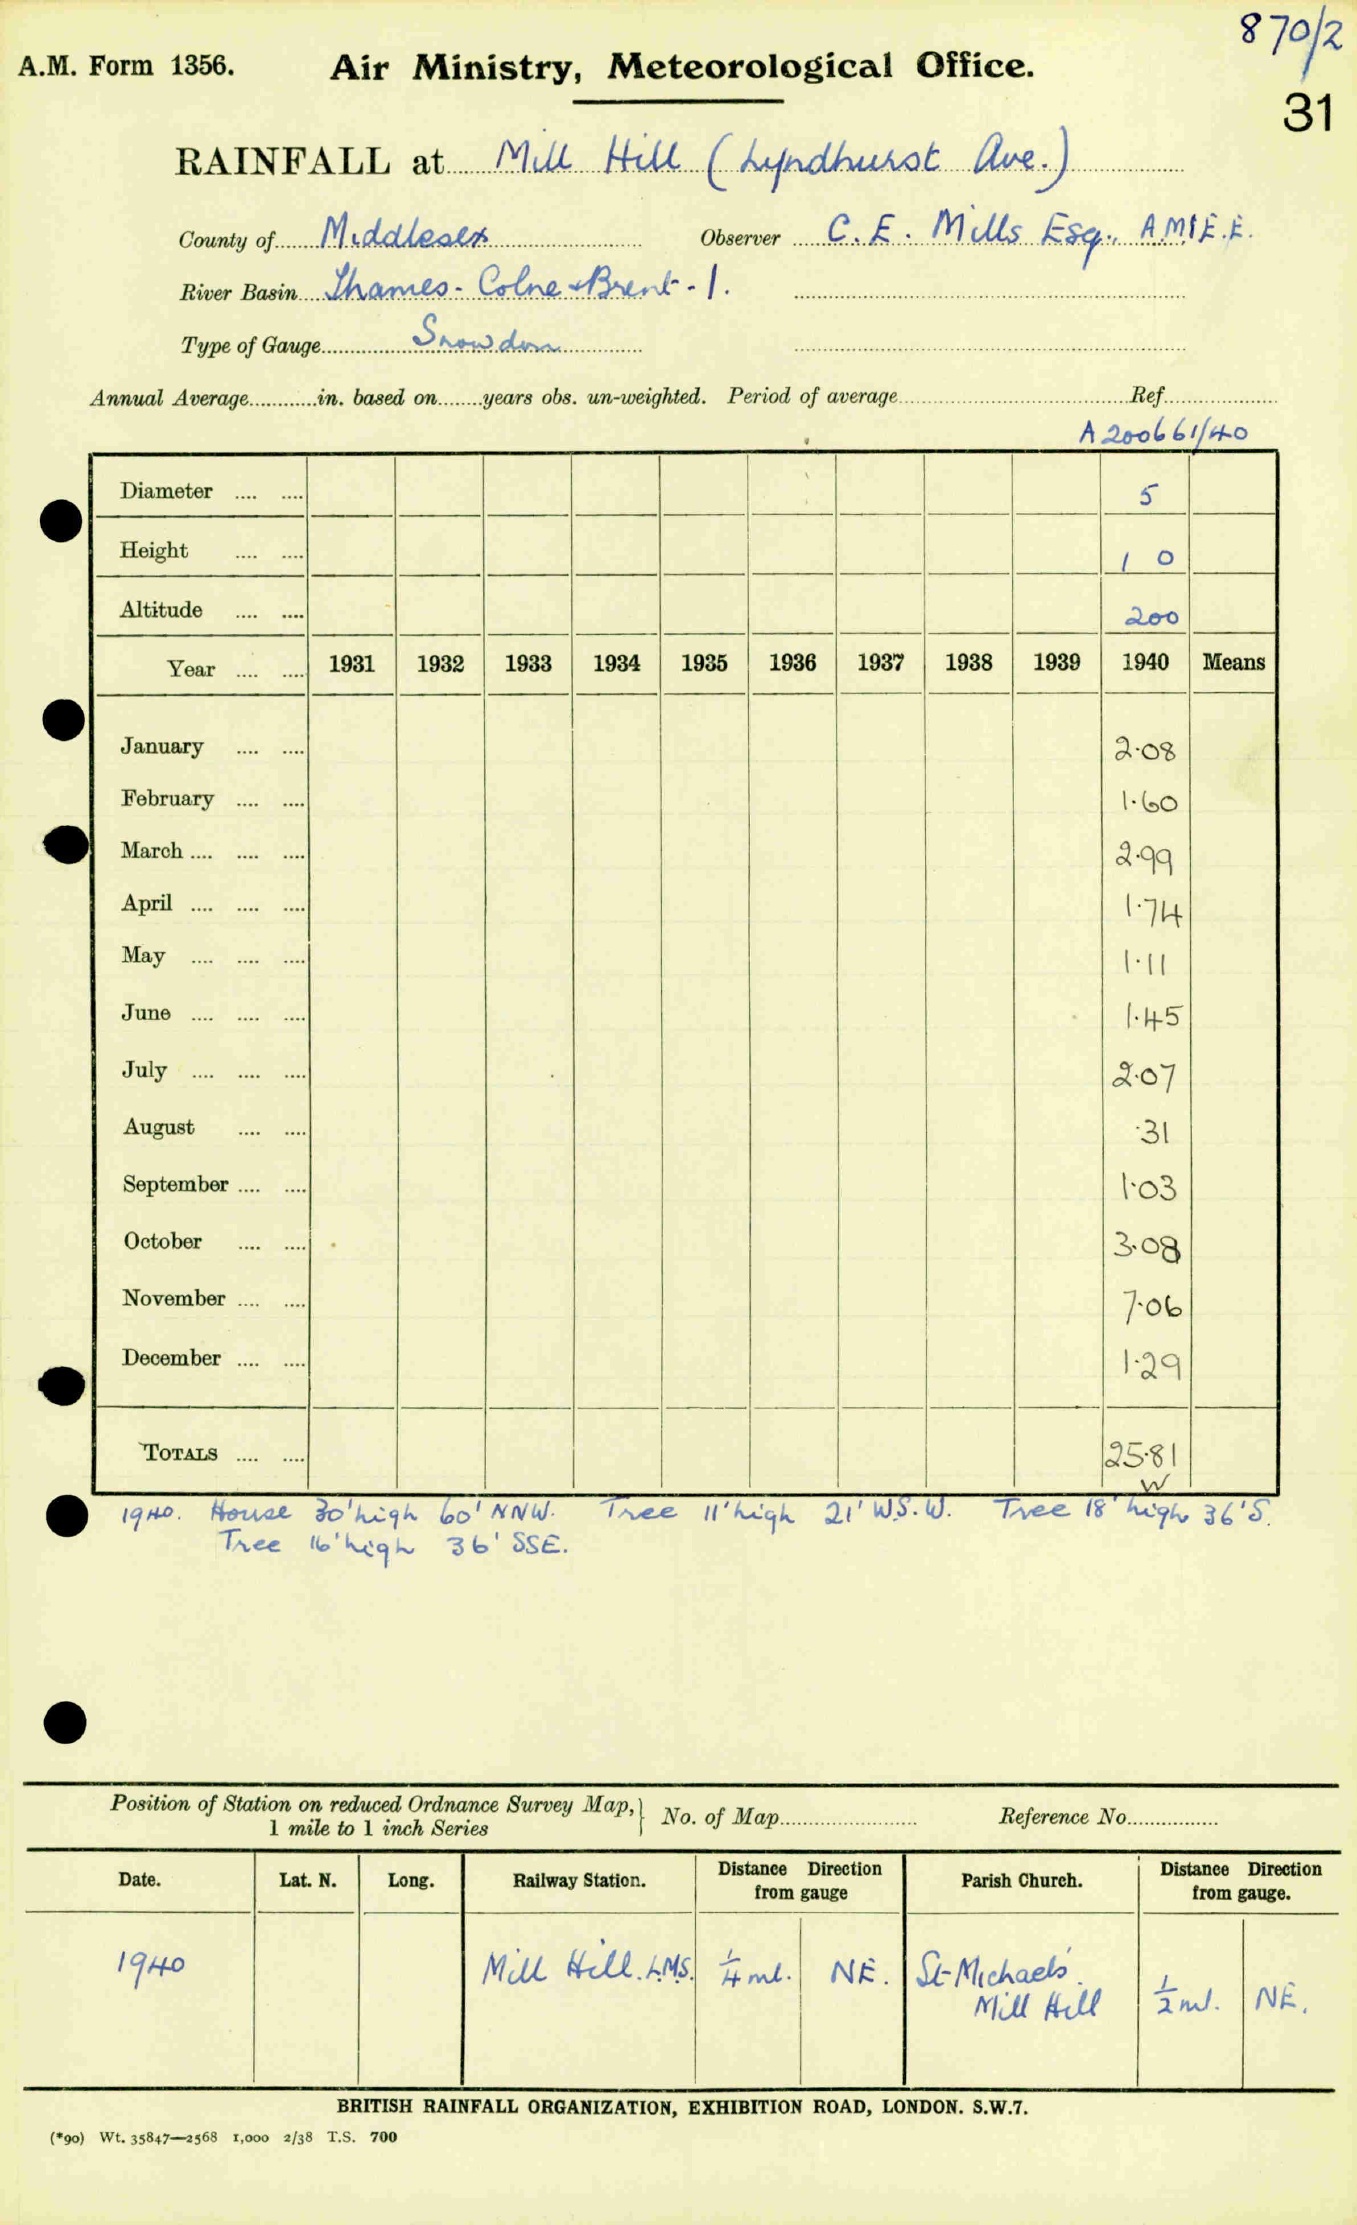 870/2
A.M. Form 1356. Air Ministry, Meteorological Office.
31
RAINFALL at Mill Hill (Lyndhurst Ave.)
County of Middlesex Observer C. E. Mills Esq., A.M.I.E.E.
River Basin Thames - Colne & Brent - 1.
Type of Gauge Snowdon
Annual Average in. based on years obs. un-weighted. Period of average Ref.
A200661/40
Diameter 5
Height 1 0
Altitude 200
Year 1931 1932 1933 1934 1935 1936 1937 1938 1939 1940 Means
January 2.08
February 1.60
March 2.99
April 1.74
May 1.11
June 1.45
July 2.07
August .31
September 1.03
October 3.08
November 7.06
December 1.29
TOTALS 25.81
W
1940. House 30' high 60' NNW. Tree 11' high 21' W.S.W. Tree 18' high 36' S.
Tree 16' high 36' SSE.
Position of Station on reduced Ordnance Survey Map, } No. of Map Reference No.
1 mile to 1 inch Series
Date. Lat. N. Long. Railway Station. Distance Direction from gauge Parish Church. Distance Direction from gauge.
1940 Mill Hill. L.M.S. 1/4 ml. NE. St Michael's
Mill Hill 1/2 ml. NE.
BRITISH RAINFALL ORGANIZATION, EXHIBITION ROAD, LONDON. S.W.7.
(*90) Wt. 35847—2568 1,000 2/38 T.S. 700